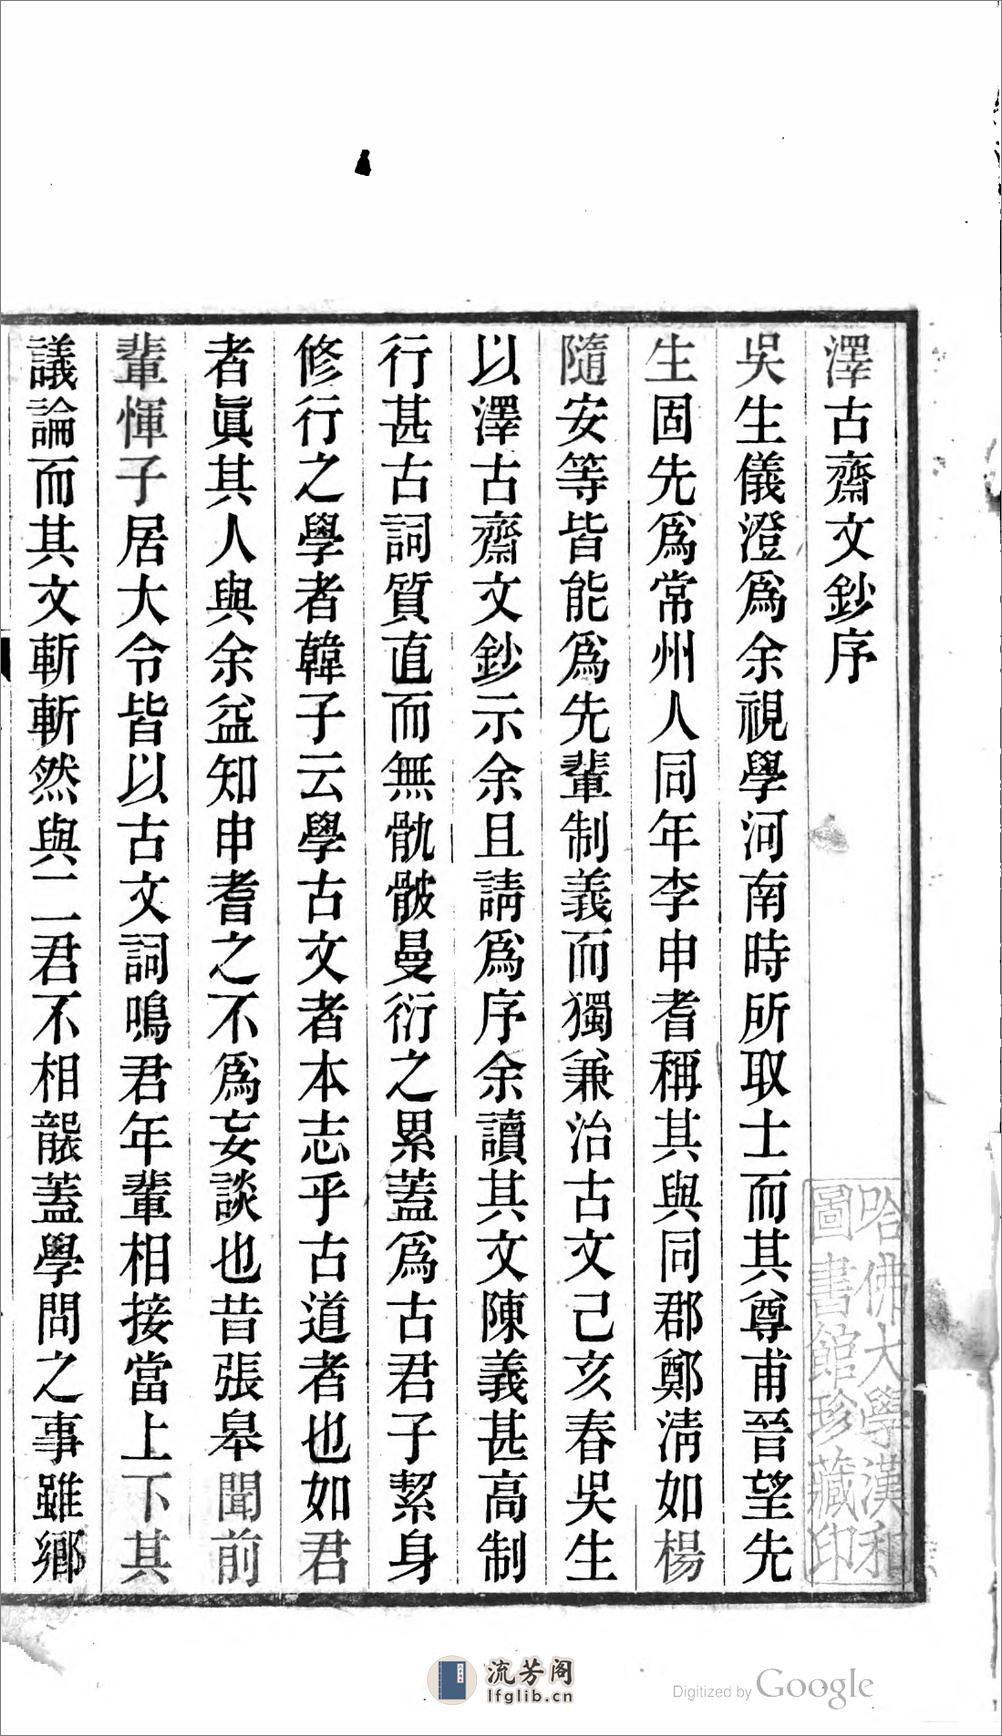 澤古齋文鈔序
吳生儀澄爲余視學河南時所取士而其尊甫晉望先
生固先爲常州人同年李申耆稱其與同郡鄭淸如楊
隨安等皆能爲先輩制義而獨兼治古文己亥春吳生
以澤古齋文鈔示余且請爲序余讀其文陳義甚高制
行甚古詞質直而無骩骳曼衍之累蓋爲古君子絜身
修行之學者韓子云學古文者本志乎古道者也如君
者眞其人與余益知申耆之不爲妄談也昔張皋聞前
輩惲子居大令皆以古文詞鳴君年輩相接當上下其
議論而其文斬斬然與二君不相襲蓋學問之事雖鄉
哈佛大學漢和
圖書館珍藏印
流芳阁
lfglib.cn
Digitized by Google